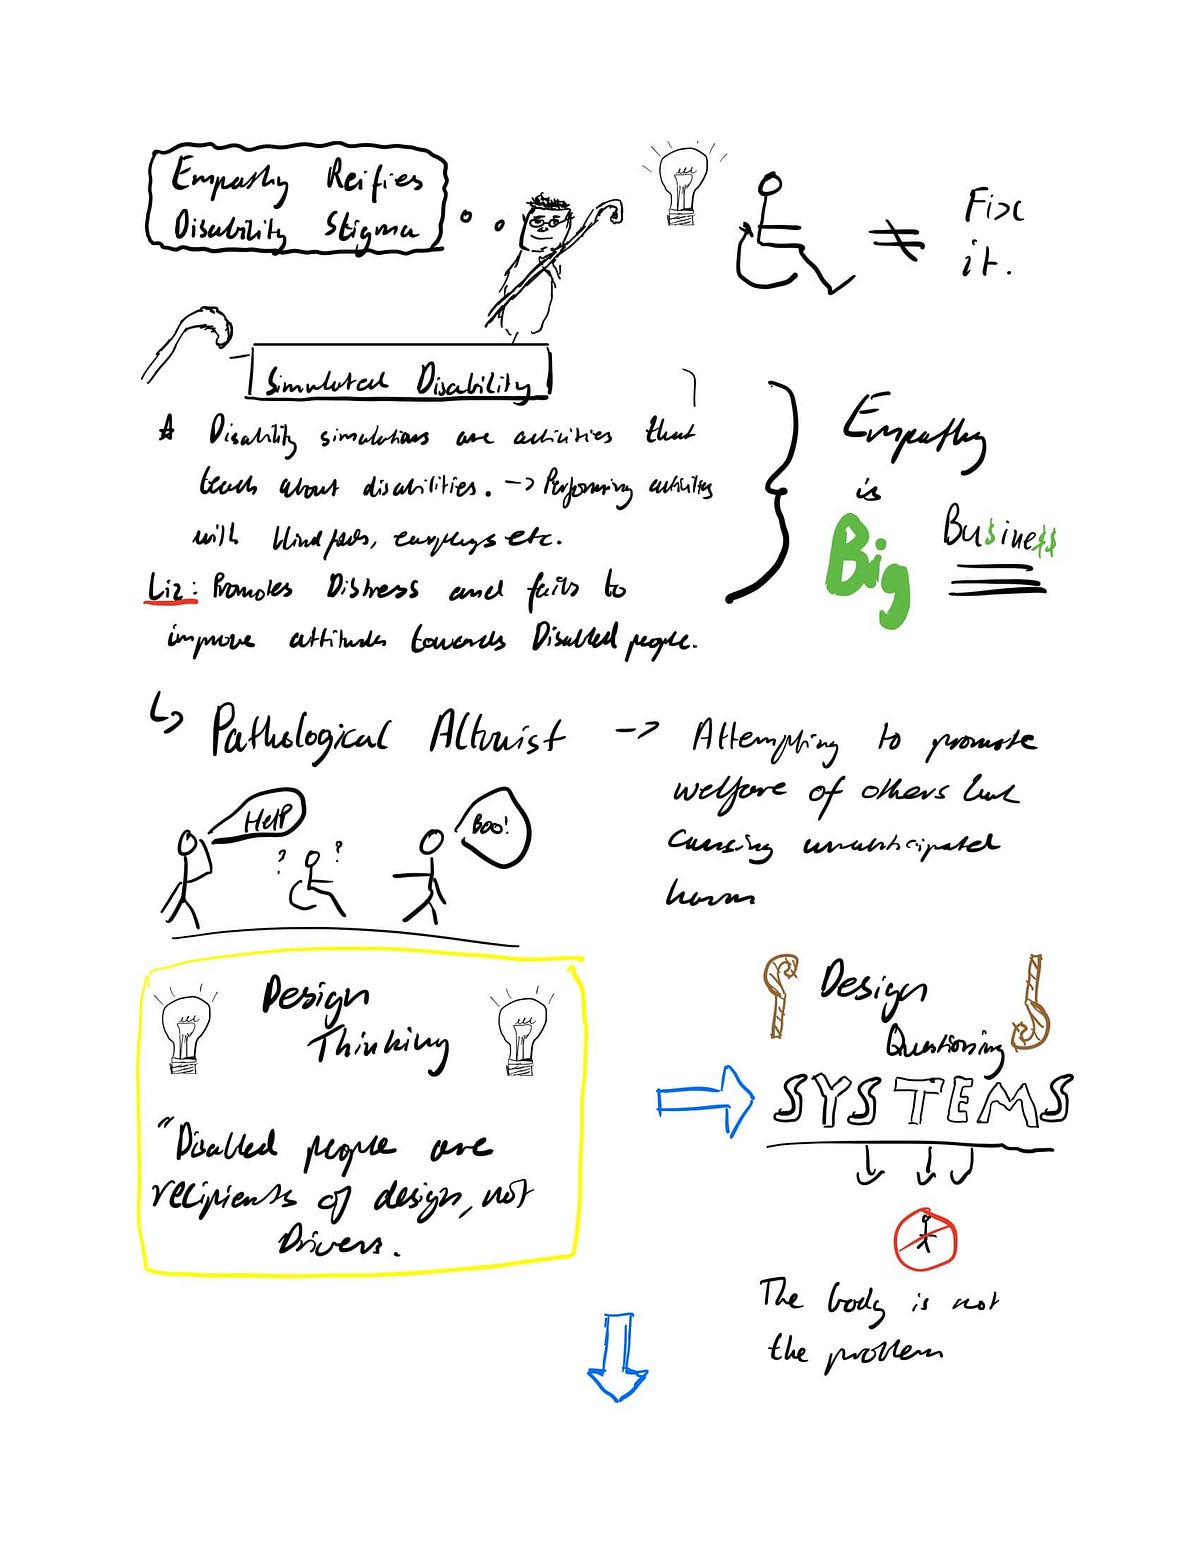 Empathy Reifies
Disability Stigma
≠
Fix
it.
Simulated Disability
Disability simulations are activities that
teach about disabilities. -> Performing activities
with blindfolds, earplugs etc.
Liz: Promotes Distress and fails to
improve attitudes towards Disabled people.
Empathy
is
Big
Bu$ine$$
Pathological Altruist ->
Attempting to promote
welfare of others but
causing unanticipated
harm
Help
? ?
Boo!
Design
Thinking
"Disabled people are
recipients of design, not
Drivers.
Design
Questioning
SYSTEMS
The body is not
the problem